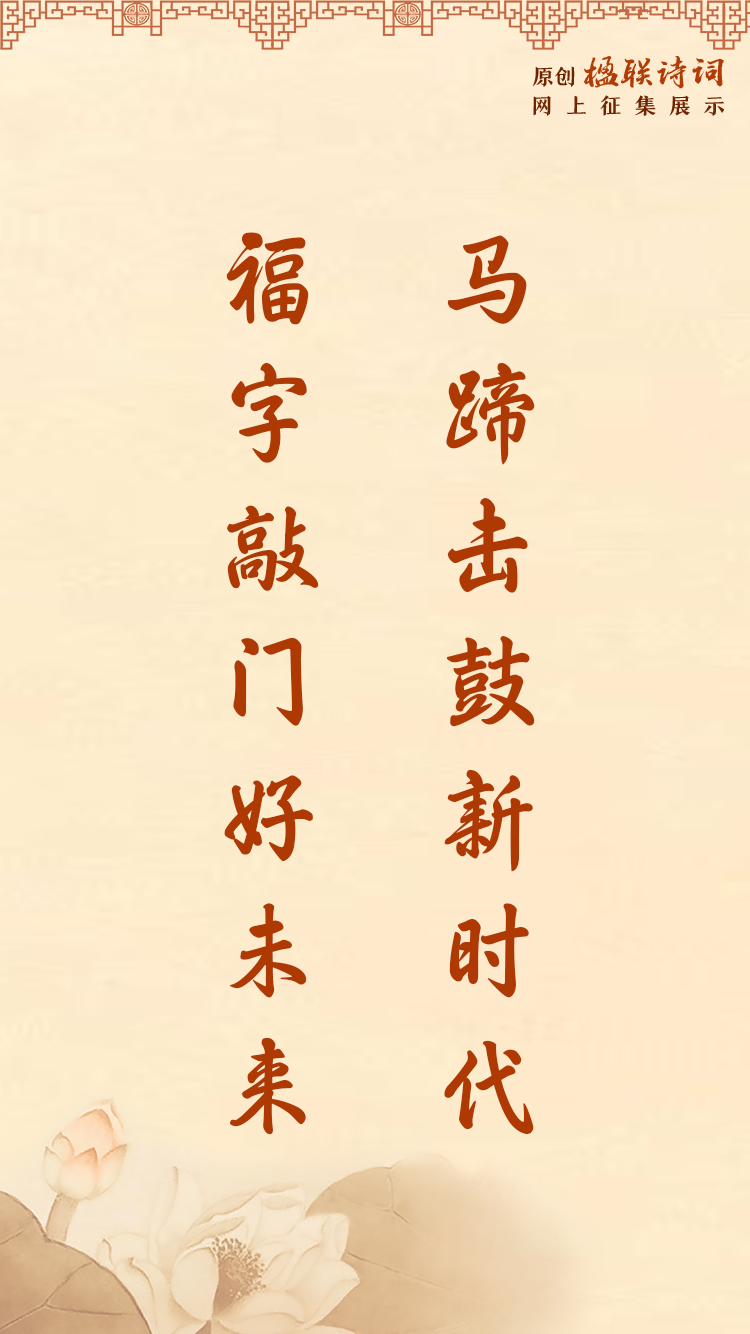 原创 楹联诗词
网上征集展示
马蹄击鼓新时代
福字敲门好未来